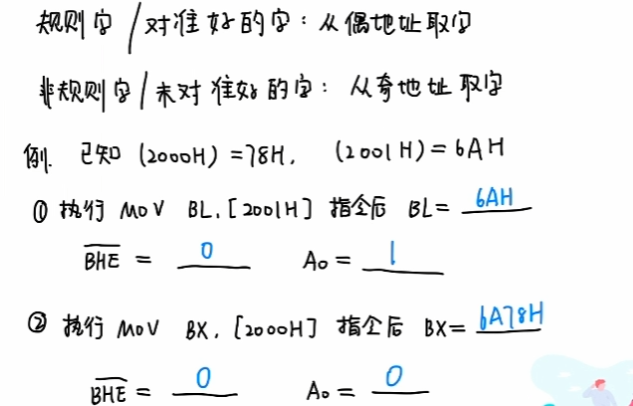 规则字/对准好的字：从偶地址取字
非规则字/未对准好的字：从奇地址取字
例. 已知 (2000H) =78H, (2001H)=6AH
① 执行 MOV BL, [2001H] 指令后 BL= 6AH
B̅H̅E̅ = 0 A₀ = 1
② 执行 MOV BX, [2000H] 指令后 BX= 6A78H
B̅H̅E̅ = 0 A₀ = 0